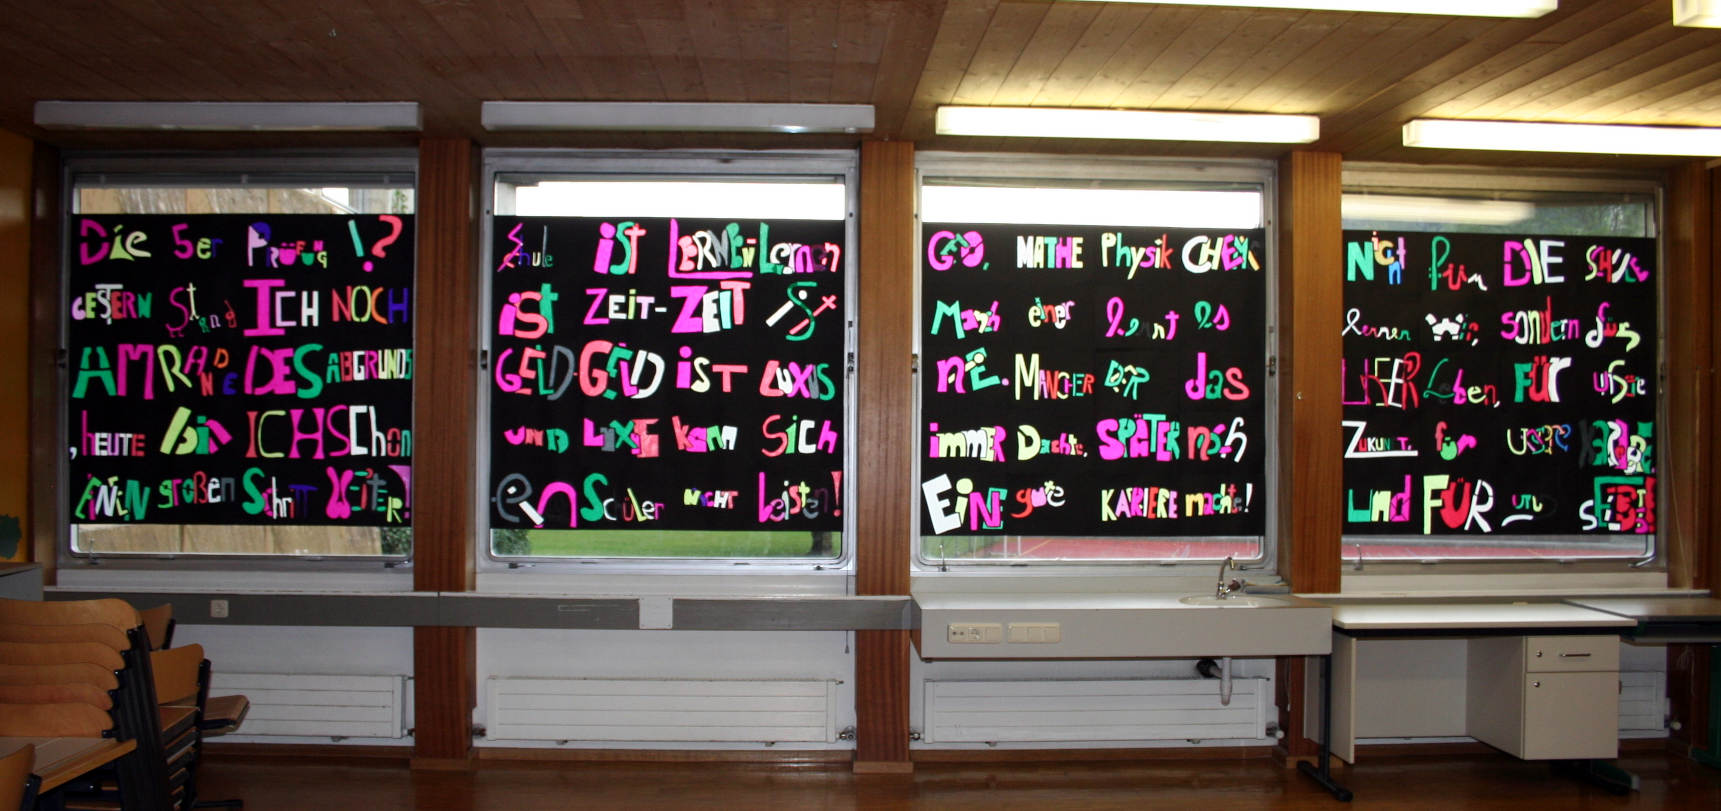 Die 5er PRÜFUNG !?
GESTERN Stand ICH NOCH
AM RANDE DES ABGRUNDS
, HEUTE bin ICH SChon
EiNEN großen Schritt WEiTER!
Schule iST LERNEN-Lernen
iST ZEiT-ZEiT iST
GELD-GELD iST LUXUS
UND LUXUS kann SiCH
ein Schüler NiCHT Leisten!
GEO, MATHE Physik CHEMIE
Manch einer lernt es
niE. MANCHER DER das
immER Dachte, SPÄTER noch
EiNE gute KARRIERE machte!
Nicht für DIE SCHULE
lernen wir, sondern fürs
Leben, FÜR unsere
ZUKUNFT, für unsere
und FÜR uns SELBST!